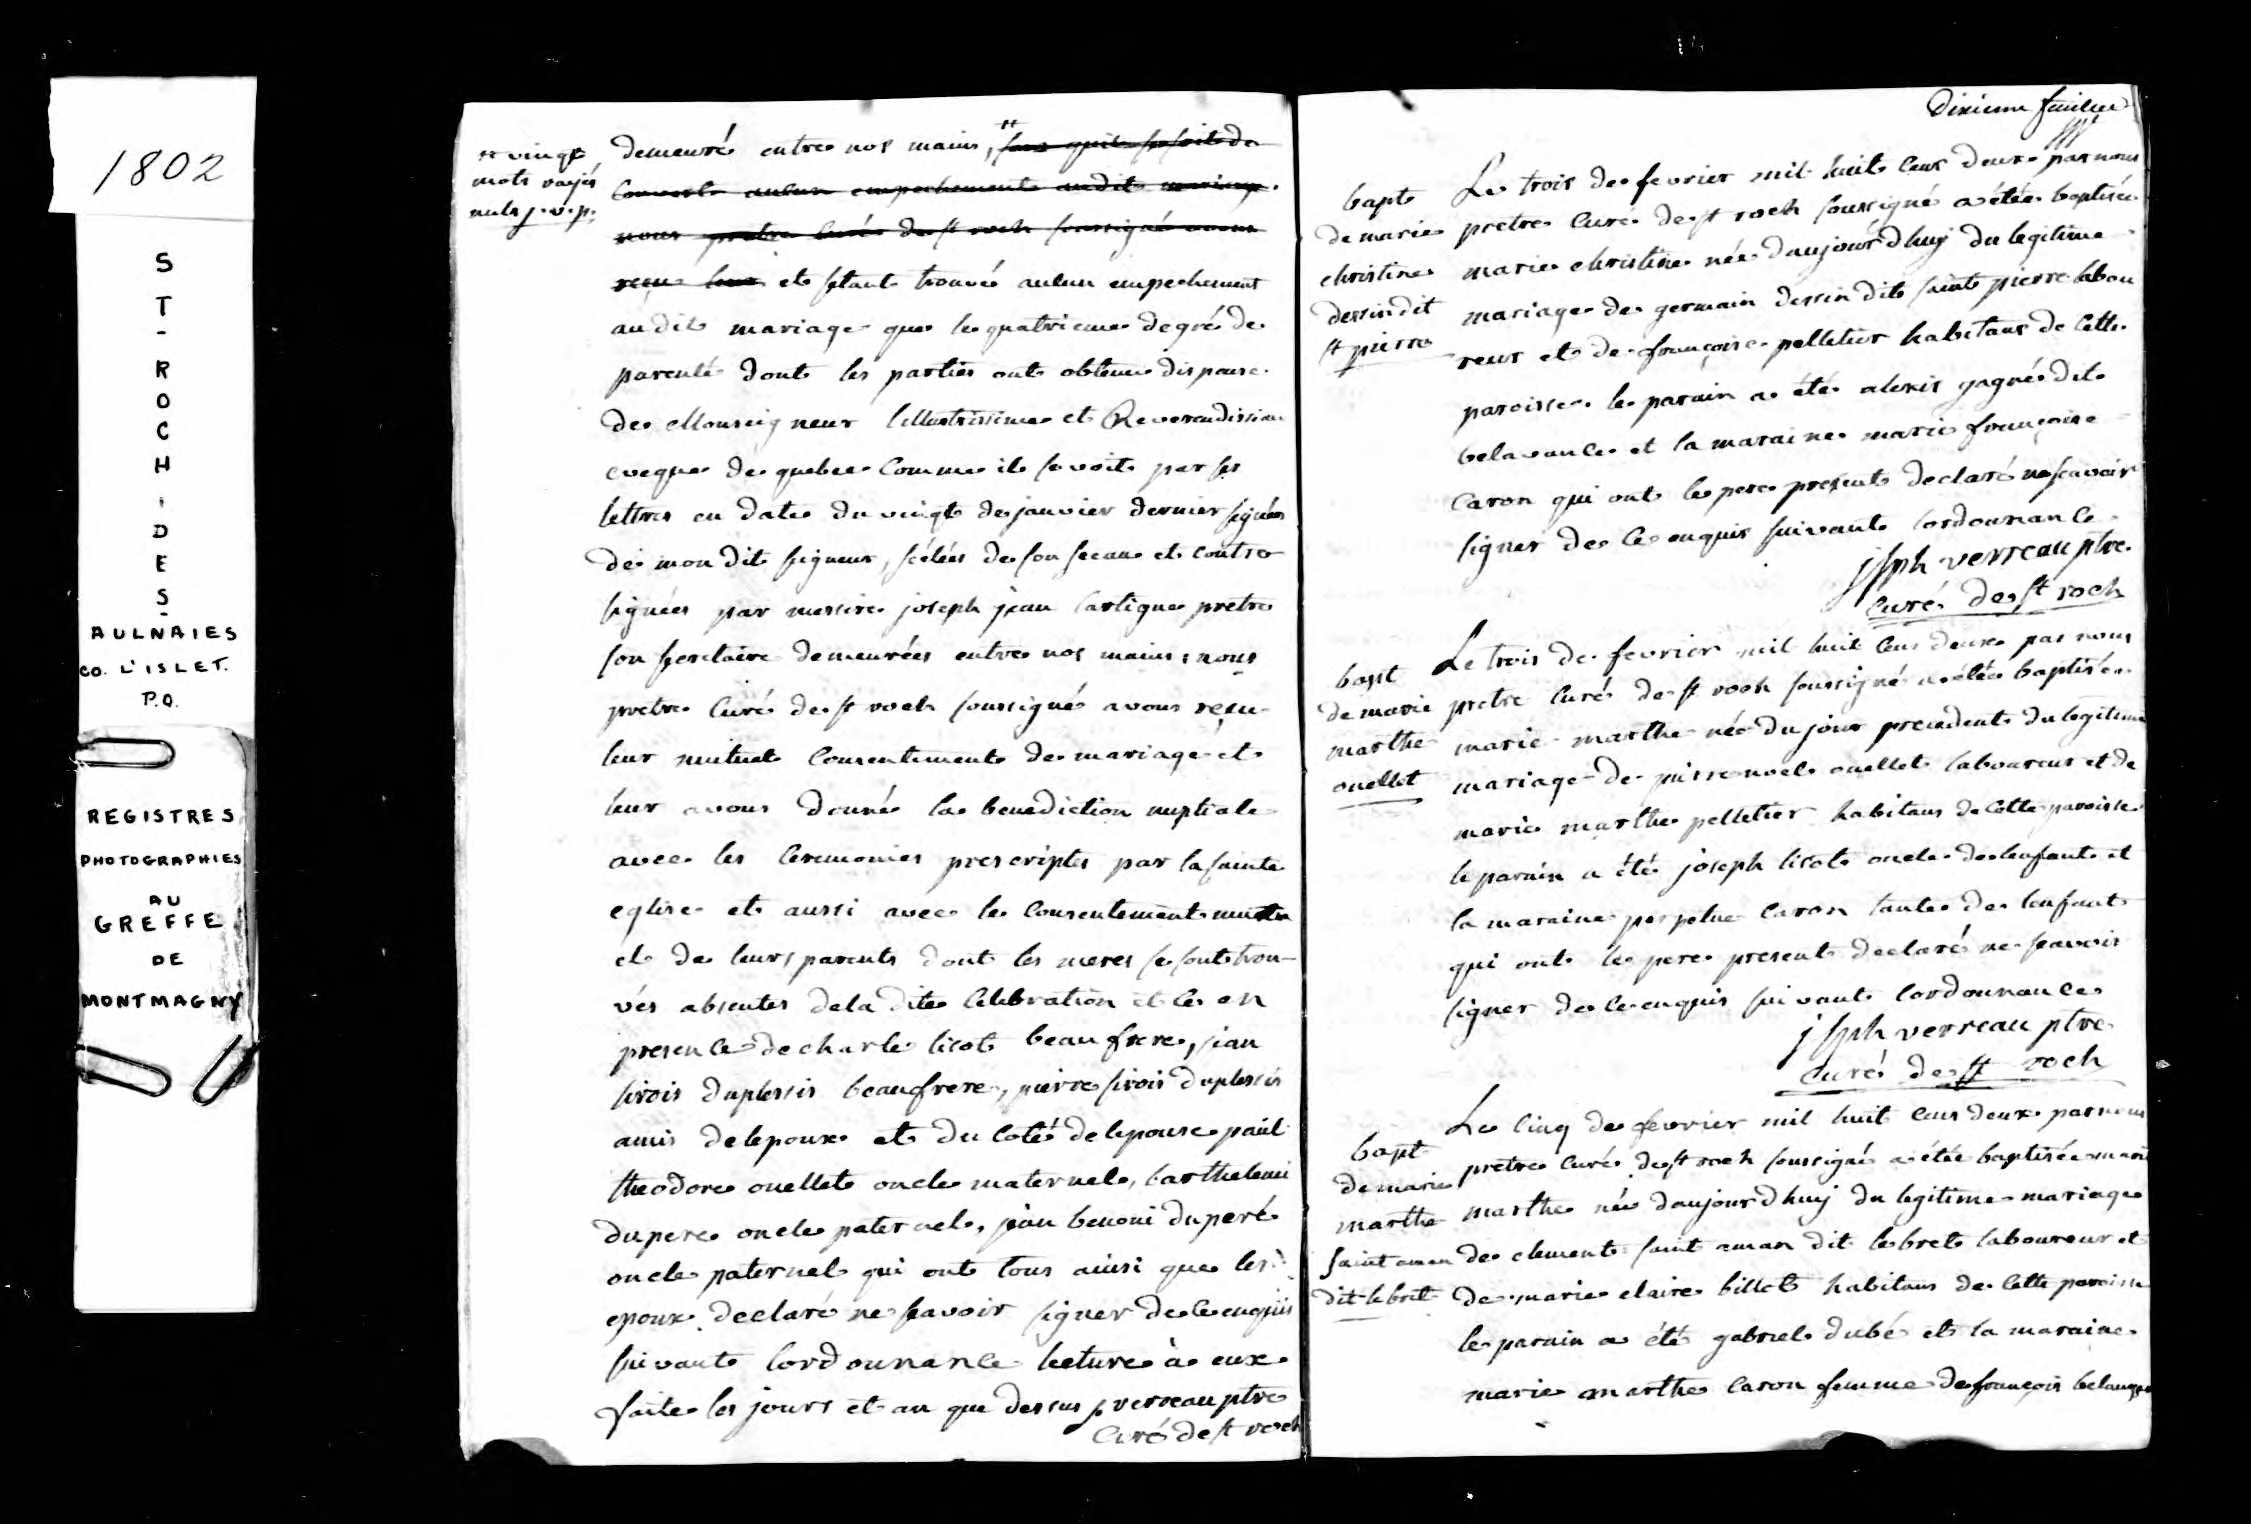 1802
S
T
-
R
O
C
H
-
D
E
S
-
AULNAIES
CO. L'ISLET.
P.Q.
REGISTRES
PHOTOGRAPHIES
AU
GREFFE
DE
MONTMAGNY
vingt
mots rayés
nuls j.v.p.
demeuré entre nos mains, sans quil se soit de
couvert aucun empechement audit mariage
nous pretre curé de st roch soussigné avons
reçu leur et setant trouvé aucun empechement
audit mariage que le quatrieme degré de
parenté dont les parties ont obtenu dispense
de Monseigneur lillustrissime et Reverendissime
eveque de quebec comme il se voit par ses
lettres en date du vingt de janvier dernier signées
de mon dit seigneur, scélées de son sceau et contre
signées par messire joseph jean lartigue pretre
son secretaire demeurées entre nos mains, nous
pretre curé de st roch soussigné avons reçu
leur mutuel consentement de mariage et
leur avons donné la benediction nuptiale
avec les ceremonies prescriptes par la sainte
eglise et aussi avec le consentement
et de leurs parents dont les meres se sont trou-
vés absentes de la dite celebration et ce en
presence de charle licot beaufrere, jean
sirois duplessis beaufrere, pierre sirois duplessis
amis de lepoux et du coté de lepouse paul
theodore ouellet oncle maternel, barthelemi
dupere oncle paternel, jean benoni duperé
oncle paternel qui ont tous ainsi que les
epoux declaré ne scavoir signer de ce enquis
suivant lordonnance lecture à eux
faite les jours et an que dessus j verreau ptre
Curé de st roch
Dixieme feuillet
jjv
bapt
de marie
christine
dessin dit
st pierre
Le trois de fevrier mil huit cens deux par nous
pretre curé de st roch soussigné a étée baptisée
marie christine née daujourdhuy du legitime
mariage de germain dessin dit saint pierre labou
reur et de françoise pelletier habitans de cette
paroisse le parain a été alexis gagné dit
belavance et la maraine marie françoise
caron qui ont le pere present declaré ne scavoir
signer de ce enquis suivant lordonnance
jsph verreau ptre
curé de st roch
bapt
de marie
marthe
ouellet
Le trois de fevrier mil huit cens deux par nous
pretre curé de st roch soussigné a étée baptisée
marie marthe née du jour precedent du legitime
mariage de pierre noel ouellet laboureur et de
marie marthe pelletier habitans de cette paroisse
le parain a été joseph licot oncle de lenfant et
la maraine perpetue caron tante de lenfant
qui ont le pere present declaré ne scavoir
signer de ce enquis suivant lordonnance
jsph verreau ptre
curé de st roch
bapt
de marie
marthe
saint aman
dit lebret
Le cinq de fevrier mil huit cens deux par nous
pretre curé de st roch soussigné a étée baptisée marie
marthe née daujourdhuy du legitime mariage
de clement saint aman dit lebret laboureur et
de marie claire billot habitans de cette paroisse
le parain a été gabriel dubé et la maraine
marie marthe caron femme de françois belanger